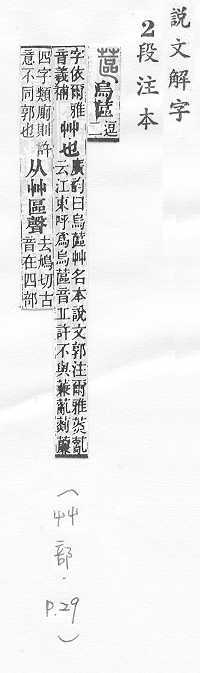 說文解字
2段注本
蓲 烏蓲 逗 二
字依爾雅音義補 艸也 廣韵曰烏蓲艸名本說文郭注爾雅菼薍云江東呼爲烏蓲音丘許不與蒹薍薍薕
四字類廁則許意不同郭也 从艸區聲 去鳩切古音在四部
(艸部.P.29)